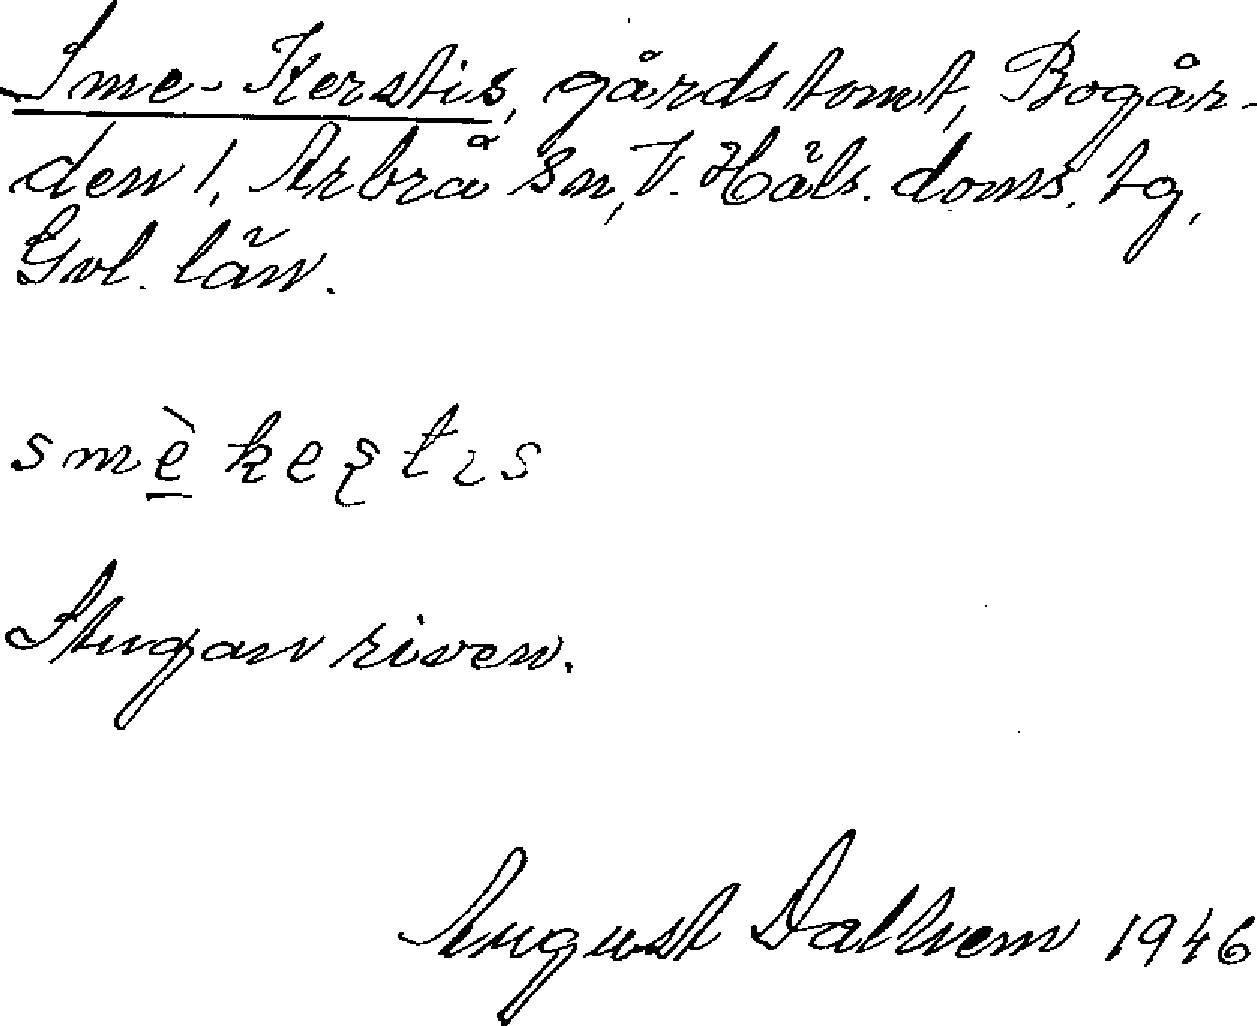 Sme-Kerstis, gårdstomt, Bogår-
den 1, Arbrå Sn, V. Häls. doms. tg,
Gvl. län.
smè keʂtɩs
Stugan riven.
August Dalhem 1946